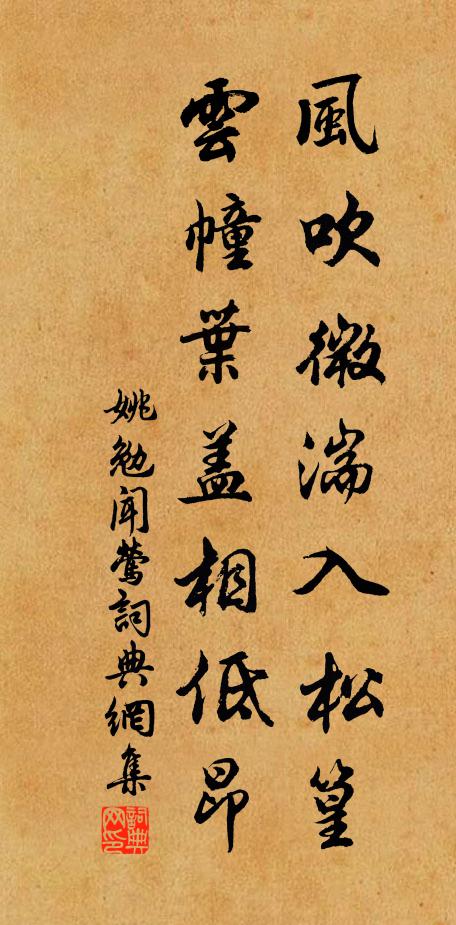 風吹微湍入松篁
雲幢葉盖相低昂
姚勉聞鶯詞典網集
詞典网印